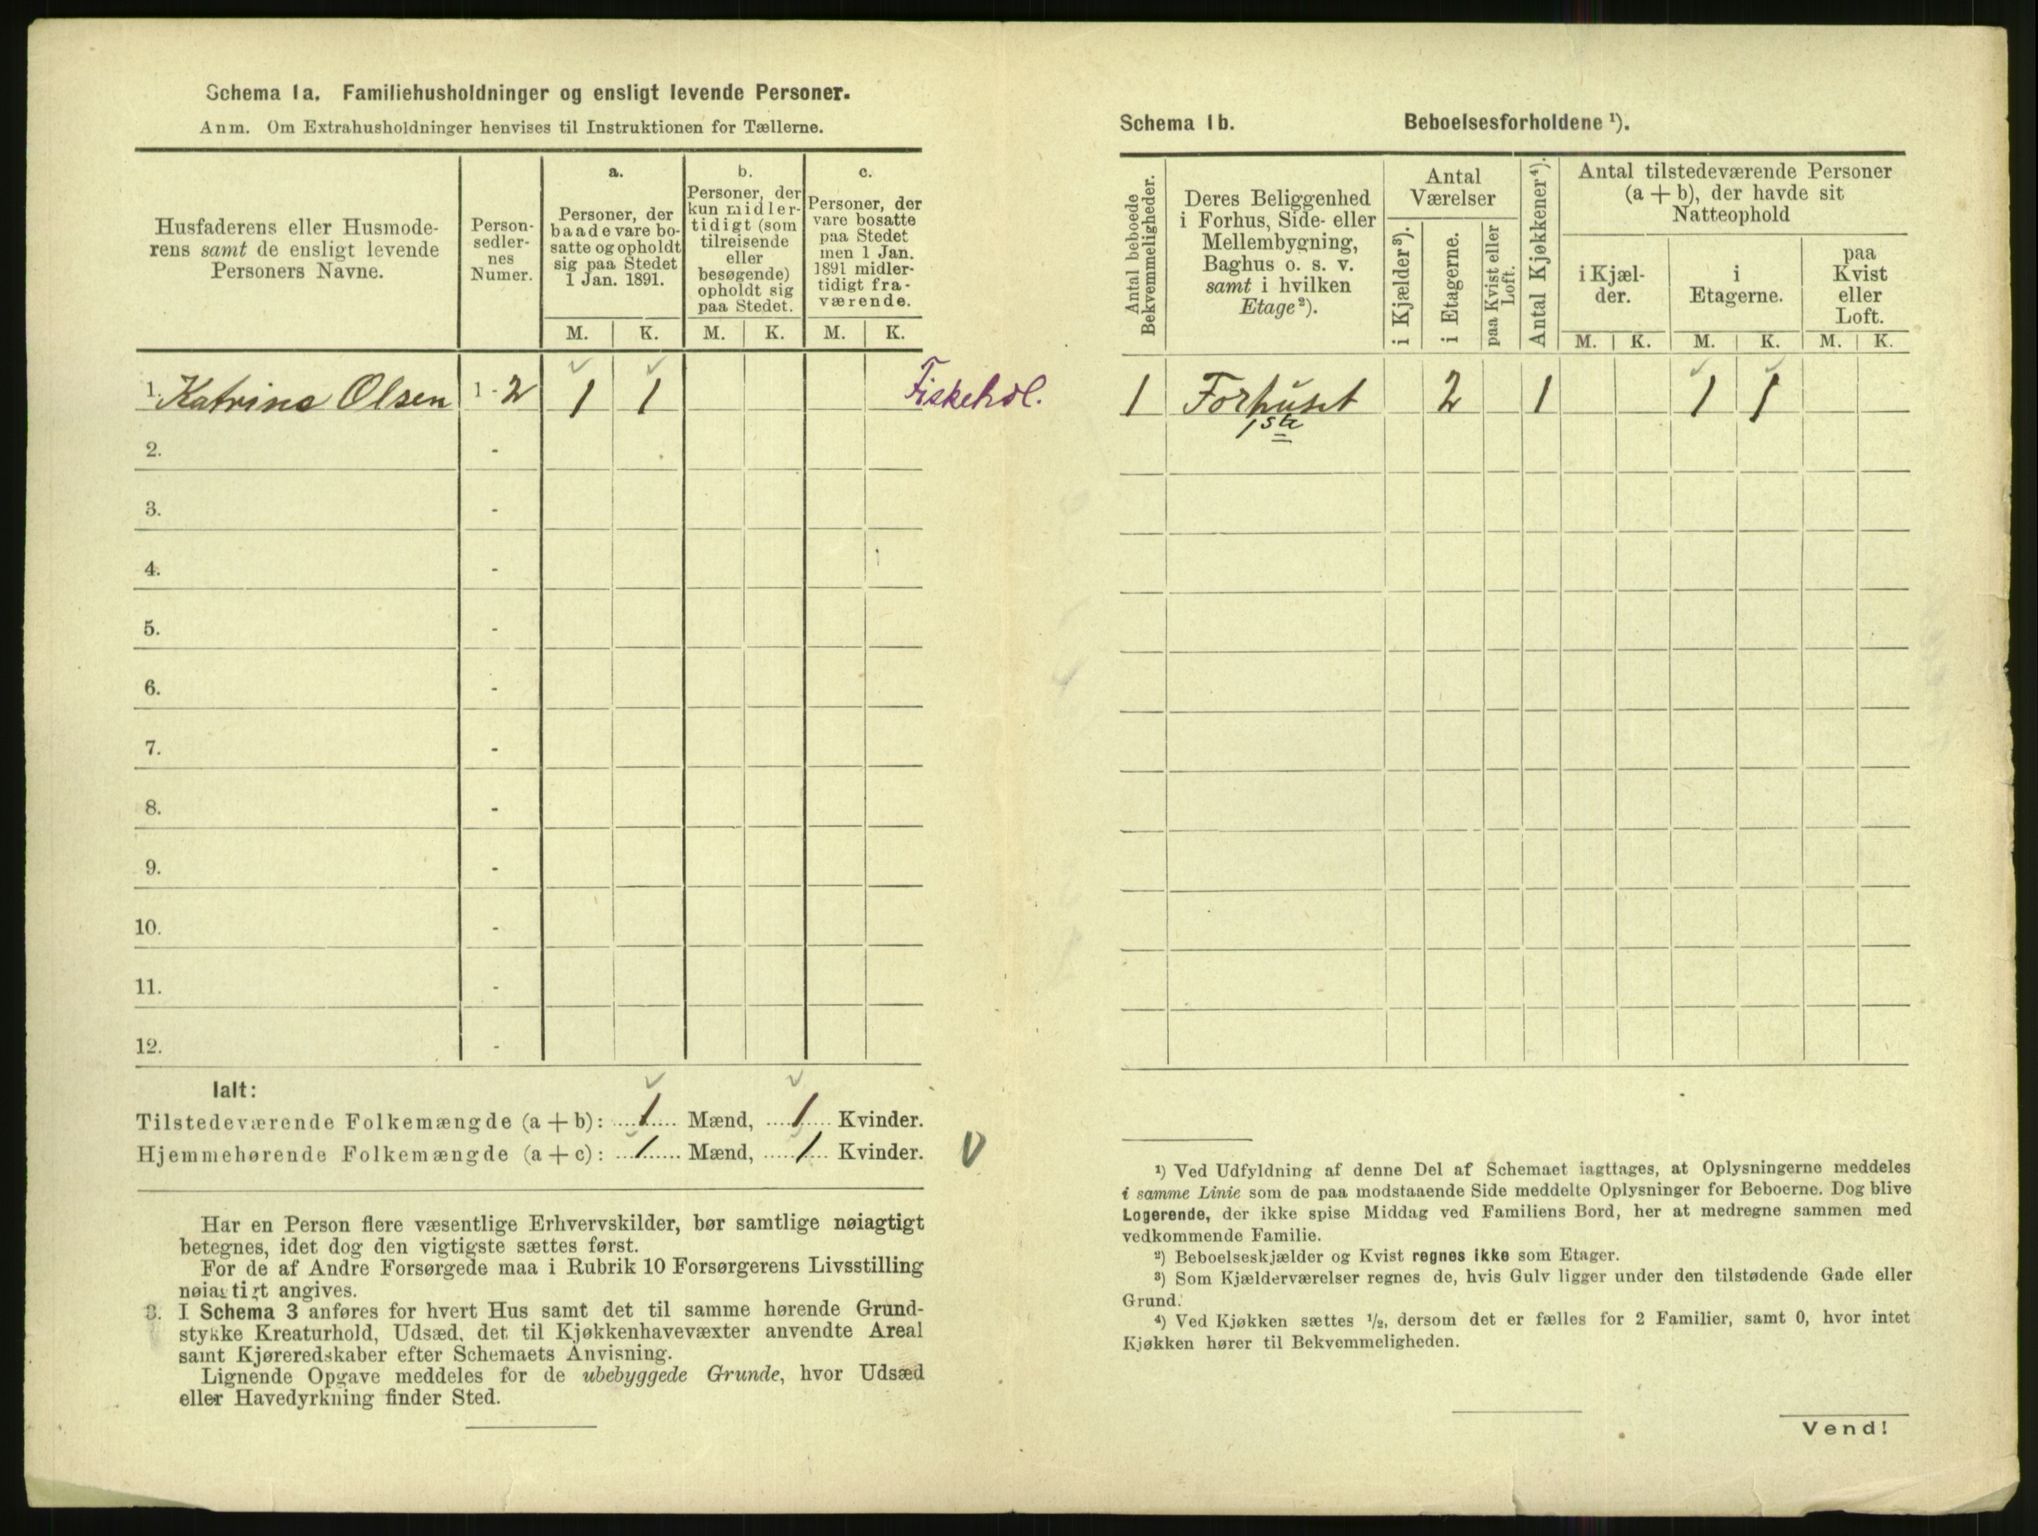 Schema 1a. Familiehusholdninger og ensligt levende Personer.
Anm. Om Extrahusholdninger henvises til Instruktionen for Tællerne.
Husfaderens eller Husmode-
rens samt de ensligt levende
Personers Navne.
Person-
sedler-
nes
Numer.
a.
Personer, der
baade vare bo-
satte og opholdt
sig paa Stedet
1 Jan. 1891.
b.
Personer, der
kun midler-
tidigt (som
tilreisende
eller
besøgende)
opholdt sig
paa Stedet.
c.
Personer, der
vare bosatte
paa Stedet
men 1 Jan.
1891 midler-
tidigt fra-
værende.
M. K. M. K. M. K.
1. Katrine Olsen 1 - 2 1 1 Fiskehdl.
2. -
3. -
4. -
5. -
6. -
7. -
8. -
9. -
10. -
11. -
12. -
Ialt:
Tilstedeværende Folkemængde (a + b): 1 Mænd, 1 Kvinder.
Hjemmehørende Folkemængde (a + c): 1 Mænd, 1 Kvinder.
Har en Person flere væsentlige Erhvervskilder, bør samtlige nøiagtigt
betegnes, idet dog den vigtigste sættes først.
For de af Andre Forsørgede maa i Rubrik 10 Forsørgerens Livsstilling
nøiagtigt angives.
3. I Schema 3 anføres for hvert Hus samt det til samme hørende Grund-
stykke Kreaturhold, Udsæd, det til Kjøkkenhavevæxter anvendte Areal
samt Kjøreredskaber efter Schemaets Anvisning.
Lignende Opgave meddeles for de ubebyggede Grunde, hvor Udsæd
eller Havedyrkning finder Sted.
Schema 1b. Beboelsesforholdene ¹).
Antal beboede
Bekvemmeligheder.
Deres Beliggenhed
i Forhus, Side- eller
Mellembygning,
Baghus o. s. v.
samt i hvilken
Etage ²).
Antal
Værelser
i Kjælder ³).
i Etagerne.
paa Kvist eller
Loft.
Antal Kjøkkener ⁴).
Antal tilstedeværende Personer
(a + b), der havde sit
Natteophold
i Kjæl-
der.
i
Etagerne.
paa
Kvist
eller
Loft.
M. K. M. K. M. K.
1 Forhuset 2 1 1 1
1ste
¹) Ved Udfyldning af denne Del af Schemaet iagttages, at Oplysningerne meddeles
i samme Linie som de paa modstaaende Side meddelte Oplysninger for Beboerne. Dog blive
Logerende, der ikke spise Middag ved Familiens Bord, her at medregne sammen med
vedkommende Familie.
²) Beboelseskjælder og Kvist regnes ikke som Etager.
³) Som Kjælderværelser regnes de, hvis Gulv ligger under den tilstødende Gade eller
Grund.
⁴) Ved Kjøkken sættes ½, dersom det er fælles for 2 Familier, samt 0, hvor intet
Kjøkken hører til Bekvemmeligheden.
Vend!